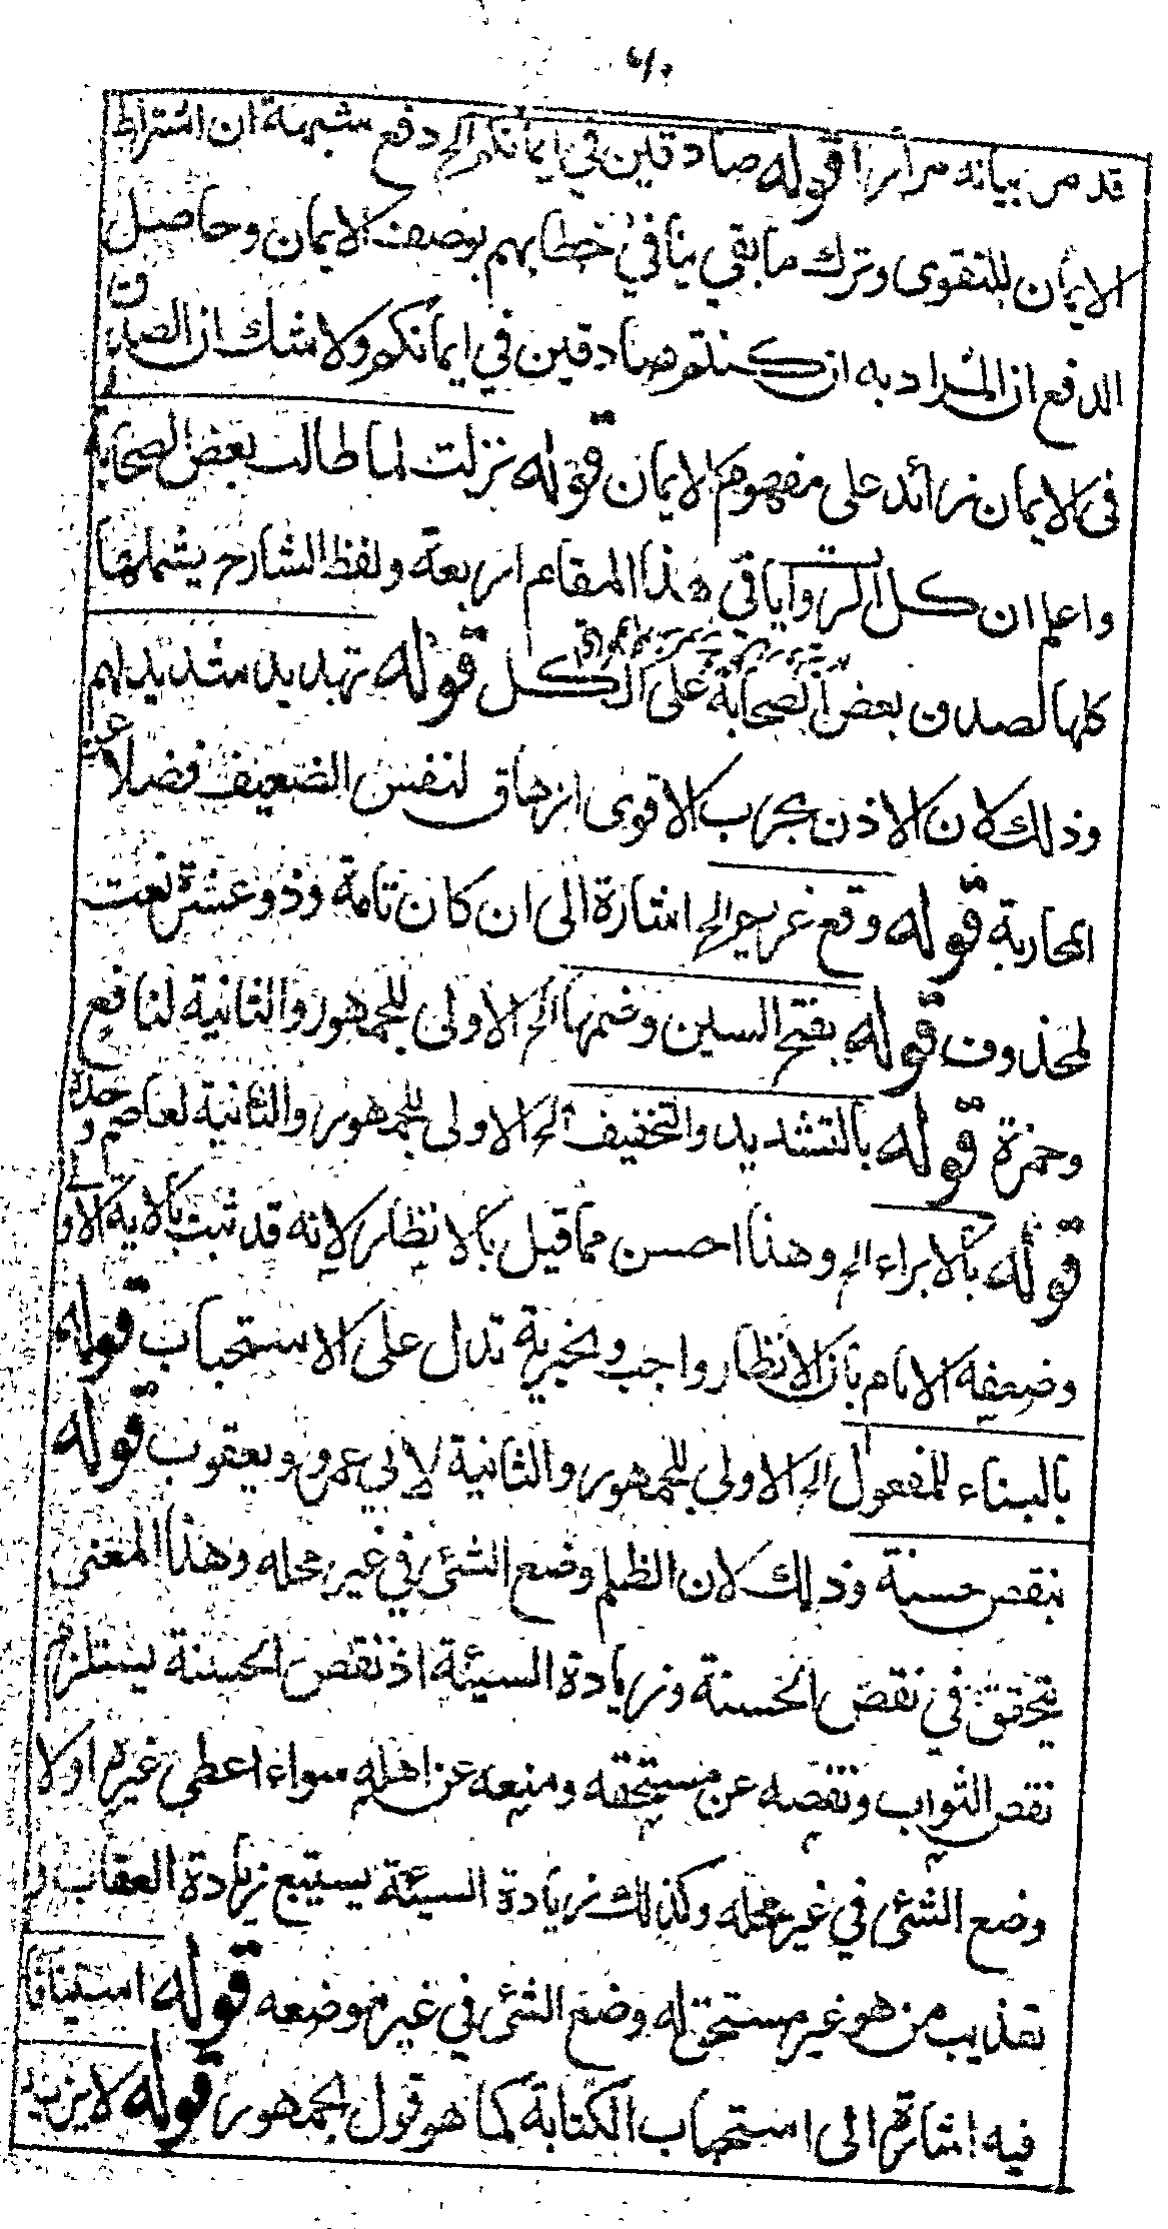 قد مر بيانه مرارا قوله صادقين في ايمانكم الخ دفع شبهة ان اشتراط
الايمان للتقوى وترك ما بقي ينافي خطابهم بوصف الايمان وحاصل
الدفع ان المراد به ان كنتم صادقين في ايمانكم ولا شك ان الصدق
في الايمان زائد على مفهوم الايمان قوله نزلت لما طالب بعض الصحابة
واعلم ان كل الروايا في هذا المقام اربعة ولفظ الشارح يشملها
كلها لصدق بعض الصحابة على الكل قوله تهديد شديد لهم
وذلك لان الاذن بحرب الاقوى ازهاق لنفس الضعيف فضلا عن
المحاربة قوله وقع غريم الخ اشارة الى ان كان تامة وذو عسرة نعت
لمحذوف قوله بفتح السين وضمها الخ الاولى للجمهور والثانية لنافع
وحمزة قوله بالتشديد والتخفيف الخ الاولى للجمهور والثانية لعاصم وحده
قوله بالابراء الخ وهذا احسن مما قيل بالانظار لانه قد ثبت بالاية الاولى
وضعفه الامام بان الانظار واجب والخيرية تدل على الاستحباب قوله
بالبناء للمفعول الخ الاولى للجمهور والثانية لابي عمرو ويعقوب قوله
بنقص حسنة وذلك لان الظلم وضع الشئ في غير محله وهذا المعنى
يتحقق في نقص الحسنة وزيادة السيئة اذ نقص الحسنة يستلزم
نقص الثواب ونقصه عن مستحقه ومنعه عن اهله سواء اعطى غيره اولا
وضع الشئ في غير محله وكذلك زيادة السيئة يستتبع زيادة العقاب و
تعذيب من هو غير مستحق له وضع الشئ في غير موضعه قوله استيثاقا
فيه اشارة الى استحباب الكتابة كما هو قول الجمهور قوله لا يزيد